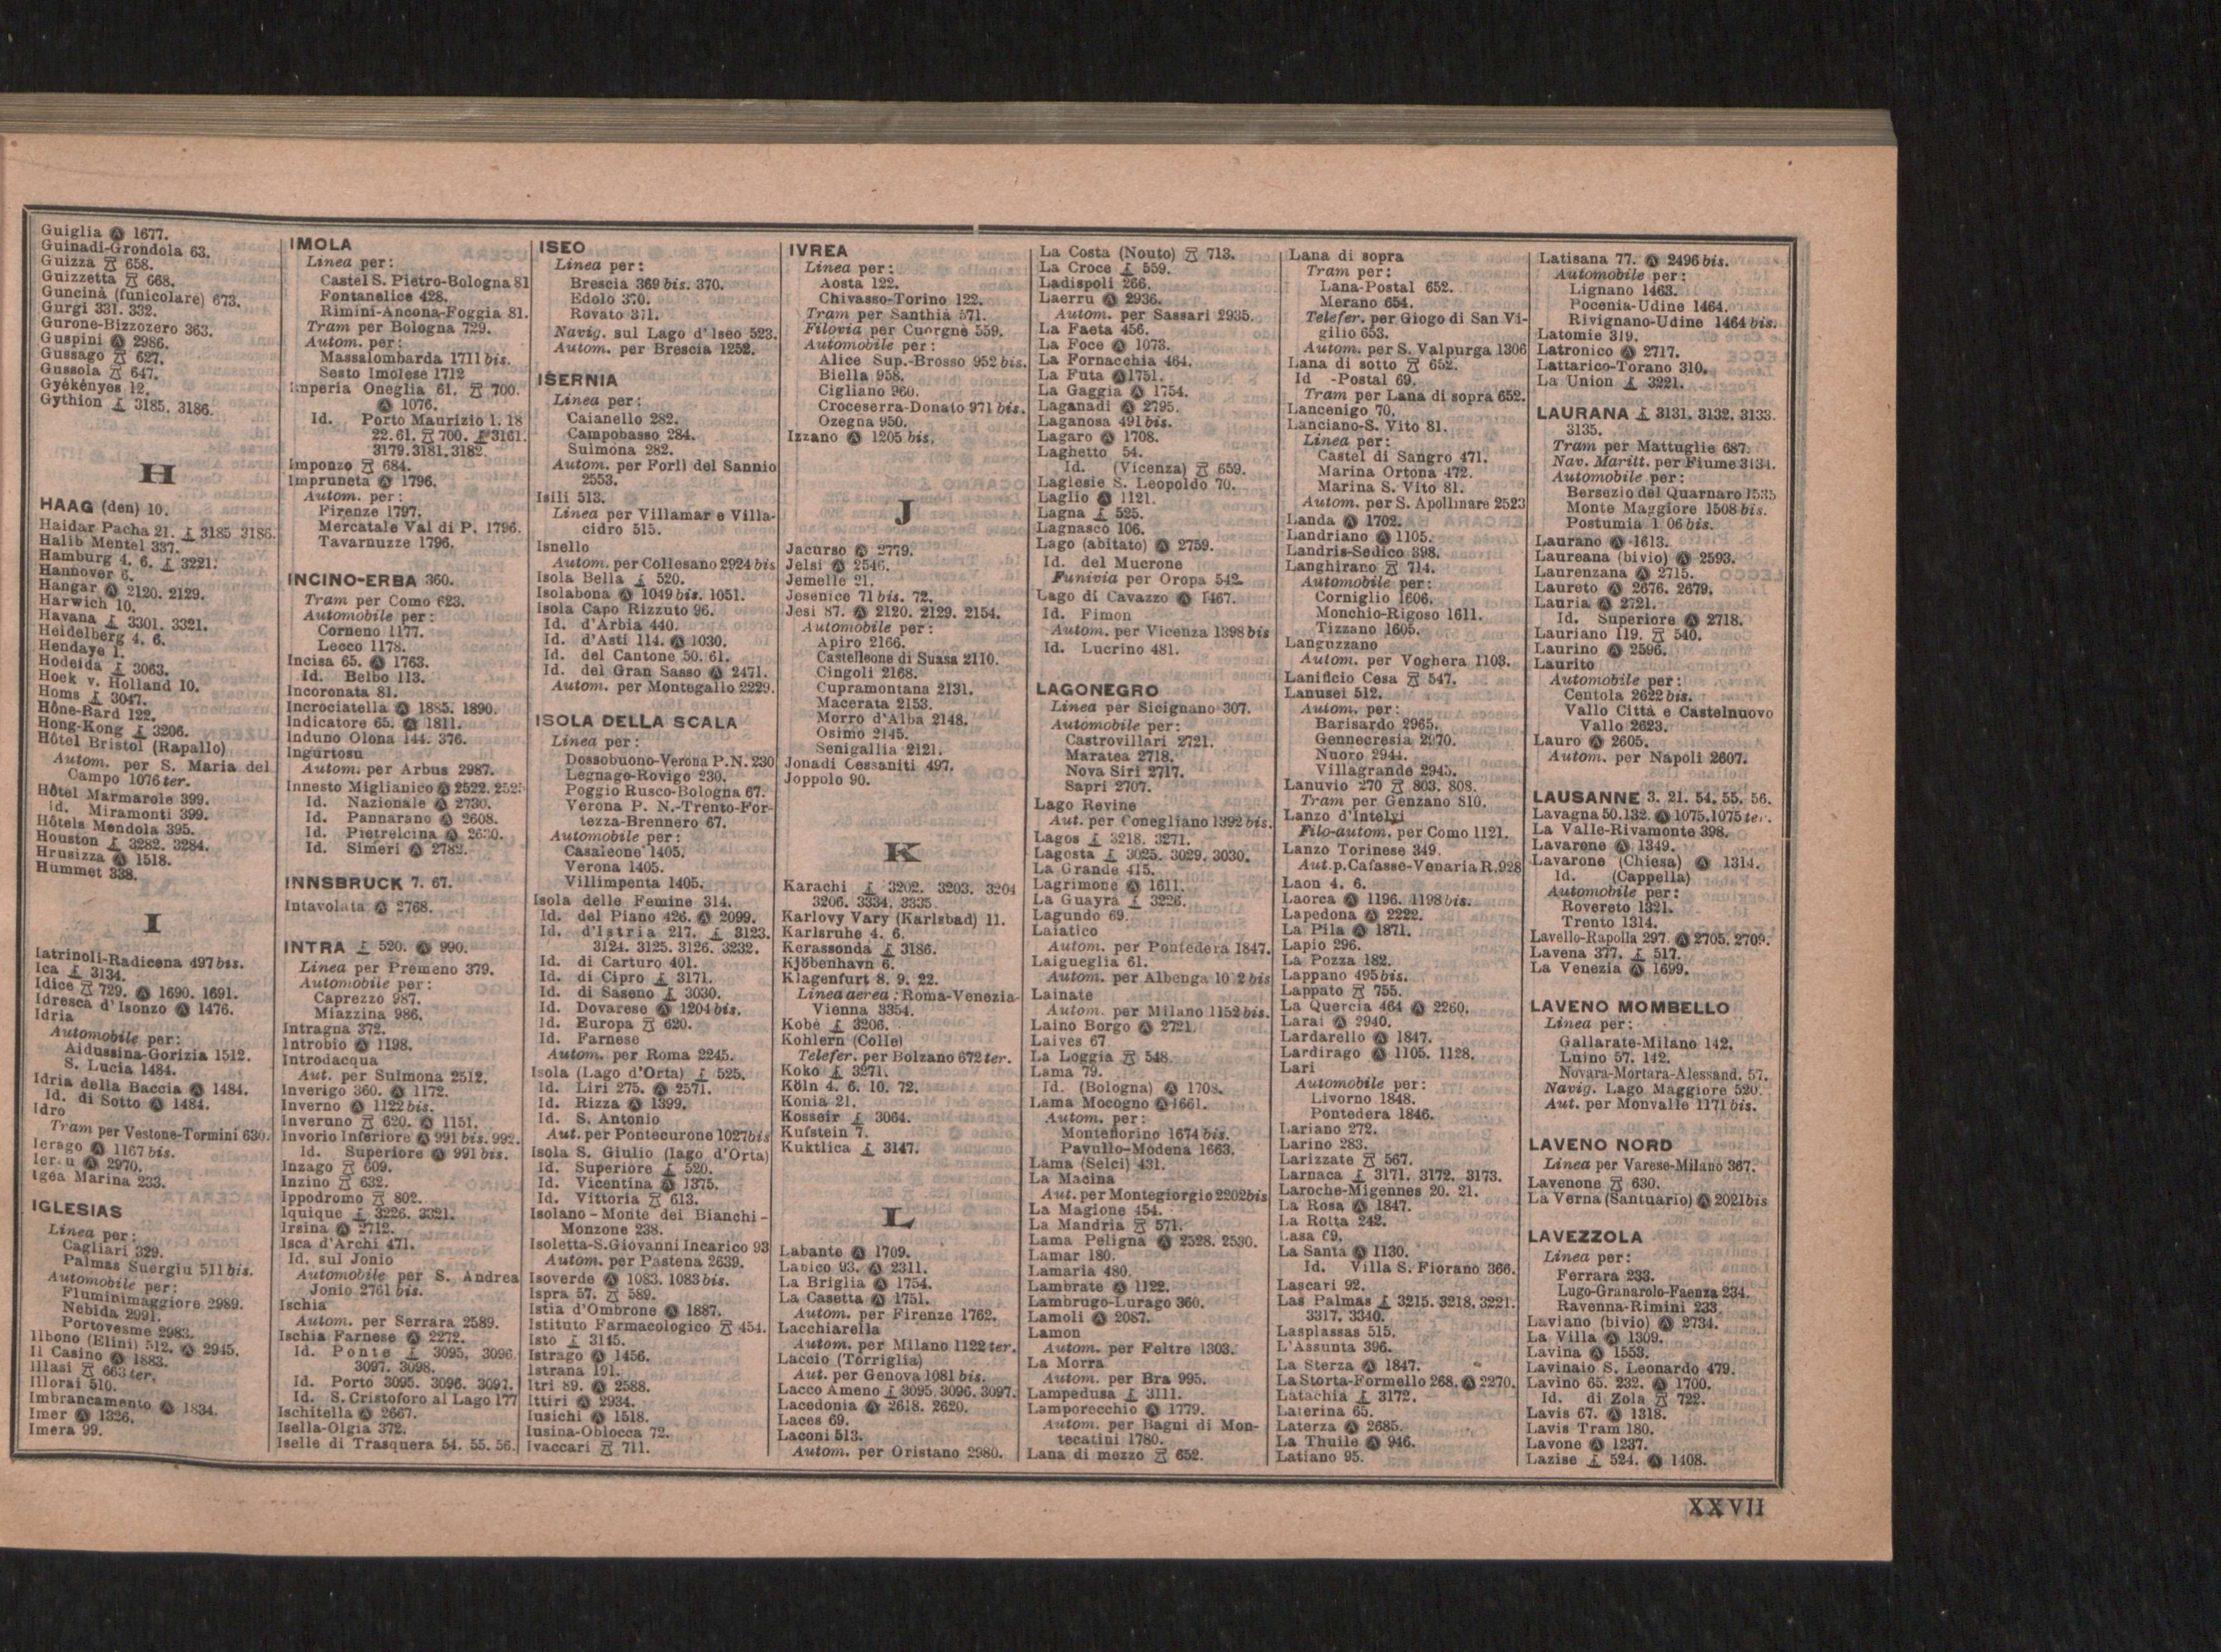 Guiglia Ⓐ 1677.
Guinadi-Grondola 63.
Guizza 658.
Guizzetta 668.
Guncinà (funicolare) 673.
Gurgi 331. 332.
Gurone-Bizzozero 363.
Guspini Ⓐ 2986.
Gussago 627.
Gussola 647.
Gyékényes 12.
Gythion 3185. 3186.
H
HAAG (den) 10.
Haidar Pacha 21. 3185 3186.
Halib Mentel 337.
Hamburg 4. 6. 3221.
Hannover 6.
Hangar Ⓐ 2120. 2129.
Harwich 10.
Havana 3301. 3321.
Heidelberg 4. 6.
Hendaye 1.
Hodeida 3063.
Hoek v. Holland 10.
Homs 3047.
Hône-Bard 122.
Hong-Kong 3206.
Hôtel Bristol (Rapallo)
Autom. per S. Maria del
Campo 1076 ter.
Hôtel Marmarole 399.
Id. Miramonti 399.
Hôtels Mendola 395.
Houston 3282. 3284.
Hrusizza Ⓐ 1518.
Hummet 338.
I
Iatrinoli-Radicena 497 bis.
Ica 3134.
Idice 729. Ⓐ 1690. 1691.
Idresca d'Isonzo Ⓐ 1476.
Idria
Automobile per:
Aidussina-Gorizia 1512.
S. Lucia 1484.
Idria della Baccia Ⓐ 1484.
Id. di Sotto Ⓐ 1484.
Idro
Tram per Vestone-Tormini 630.
Ierago Ⓐ 1167 bis.
Ier u Ⓐ 2970.
Igea Marina 233.
IGLESIAS
Linea per:
Cagliari 329.
Palmas Suergiu 511 bis.
Automobile per:
Fluminimaggiore 2989.
Nebida 2991.
Portovesme 2983.
Ilbono (Elini) 512. Ⓐ 2945.
Il Casino Ⓐ 1883.
Illasi 663 ter.
Illorai 510.
Imbrancamento Ⓐ 1834.
Imer Ⓐ 1326.
Imera 99.
IMOLA
Linea per:
Castel S. Pietro-Bologna 81
Fontanelice 428.
Rimini-Ancona-Foggia 81.
Tram per Bologna 729.
Autom. per:
Massalombarda 1711 bis.
Sesto Imolese 1712
Imperia Oneglia 61. 700.
Ⓐ 1076.
Id. Porto Maurizio 1. 18
22. 61. 700. 3161.
3179. 3181. 3182.
Imponzo 684.
Impruneta Ⓐ 1796.
Autom. per:
Firenze 1797.
Mercatale Val di P. 1796.
Tavarnuzze 1796.
INCINO-ERBA 360.
Tram per Como 623.
Automobile per:
Corneno 1177.
Lecco 1178.
Incisa 65. Ⓐ 1763.
Id. Belbo 113.
Incoronata 81.
Incrociatella Ⓐ 1885. 1890.
Indicatore 65. Ⓐ 1811.
Induno Olona 144. 376.
Ingurtosu
Autom. per Arbus 2987.
Innesto Miglianico Ⓐ 2522.
Id. Nazionale Ⓐ 2730.
Id. Pannarano Ⓐ 2608.
Id. Pietrelcina Ⓐ 2630.
Id. Simeri Ⓐ 2782.
INNSBRUCK 7. 67.
Intavolata Ⓐ 2768.
INTRA 520. Ⓐ 990.
Linea per Premeno 379.
Automobile per:
Caprezzo 987.
Miazzina 986.
Intragna 372.
Introbio Ⓐ 1198.
Introdacqua
Aut. per Sulmona 2512.
Inverigo 360. Ⓐ 1172.
Inverno Ⓐ 1122 bis.
Inveruno 620. Ⓐ 1151.
Invorio Inferiore Ⓐ 991 bis. 992.
Id. Superiore Ⓐ 991 bis.
Inzago 609.
Inzino 632.
Ippodromo 802.
Iquique 3226. 3321.
Irsina Ⓐ 2712.
Isca d'Archi 471.
Id. sul Jonio
Automobile per S. Andrea
Jonio 2761 bis.
Ischia
Autom. per Serrara 2589.
Ischia Farnese Ⓐ 2272.
Id. Ponte 3095, 3096.
3097. 3098.
Id. Porto 3095. 3096. 3097.
Id. S. Cristoforo al Lago 177
Ischitella Ⓐ 2667.
Isella-Olgia 372.
Iselle di Trasquera 54. 55. 56.
ISEO
Linea per:
Brescia 369 bis. 370.
Edolo 370.
Rovato 371.
Navig. sul Lago d'Iseo 523.
Autom. per Brescia 1252.
ISERNIA
Linea per:
Caianello 282.
Campobasso 284.
Sulmona 282.
Autom. per Forlì del Sannio
2553.
Isili 513.
Linea per Villamar e Villa-
cidro 515.
Isnello
Autom. per Collesano 2924 bis
Isola Bella 520.
Isolabona Ⓐ 1049 bis. 1051.
Isola Capo Rizzuto 96.
Id. d'Arbia 440.
Id. d'Asti 114. Ⓐ 1030.
Id. del Cantone 50. 61.
Id. del Gran Sasso Ⓐ 2471.
Autom. per Montegallo 2229.
ISOLA DELLA SCALA
Linea per:
Dossobuono-Verona P. N. 230
Legnago-Rovigo 230.
Poggio Rusco-Bologna 67.
Verona P. N.-Trento-For-
tezza-Brennero 67.
Automobile per:
Casaleone 1405.
Verona 1405.
Villimpenta 1405.
Isola delle Femine 314.
Id. del Piano 426. Ⓐ 2099.
Id. d'Istria 217. 3123.
3124. 3125. 3126. 3232.
Id. di Carturo 401.
Id. di Cipro 3171.
Id. di Saseno 3030.
Id. Dovarese Ⓐ 1204 bis.
Id. Europa 620.
Id. Farnese
Autom. per Roma 2245.
Isola (Lago d'Orta) 525.
Id. Liri 275. Ⓐ 2571.
Id. Rizza Ⓐ 1399.
Id. S. Antonio
Aut. per Pontecurone 1027 bis
Isola S. Giulio (lago d'Orta)
Id. Superiore 520.
Id. Vicentina Ⓐ 1375.
Id. Vittoria 613.
Isolano - Monte dei Bianchi -
Monzone 238.
Isoletta-S. Giovanni Incarico 93
Autom. per Pastena 2639.
Isoverde Ⓐ 1083. 1083 bis.
Ispra 57. 589.
Istia d'Ombrone Ⓐ 1887.
Istituto Farmacologico 454.
Isto 3145.
Istrago Ⓐ 1456.
Istrana 191.
Itri 89. Ⓐ 2588.
Ittiri Ⓐ 2934.
Iusichi Ⓐ 1518.
Iusina-Oblocca 72.
Ivaccari 711.
IVREA
Linea per:
Aosta 122.
Chivasso-Torino 122.
Tram per Santhià 571.
Filovia per Cuorgnè 559.
Automobile per:
Alice Sup.-Brosso 952 bis.
Biella 958.
Cigliano 960.
Croceserra-Donato 971 bis.
Ozegna 950.
Izzano Ⓐ 1205 bis.
J
Jacurso Ⓐ 2779.
Jelsi Ⓐ 2546.
Jemelle 21.
Jesenice 71 bis. 72.
Jesi 87. Ⓐ 2120. 2129. 2154.
Automobile per:
Apiro 2166.
Castelleone di Suasa 2110.
Cingoli 2168.
Cupramontana 2131.
Macerata 2153.
Morro d'Alba 2148.
Osimo 2145.
Senigallia 2121.
Jonadi Cessaniti 497.
Joppolo 90.
K
Karachi 3202. 3203. 3204
3206. 3334. 3335.
Karlovy Vary (Karlsbad) 11.
Karlsruhe 4. 6.
Kerassonda 3186.
Kjöbenhavn 6.
Klagenfurt 8. 9. 22.
Linea aerea: Roma-Venezia-
Vienna 3354.
Kobé 3206.
Kohlern (Colle)
Telefer. per Bolzano 672 ter.
Koko 3271.
Köln 4. 6. 10. 72.
Konia 21.
Kosseir 3064.
Kufstein 7.
Kuktlica 3147.
L
Labante Ⓐ 1709.
Labico 93. Ⓐ 2311.
La Briglia Ⓐ 1754.
La Casetta Ⓐ 1751.
Autom. per Firenze 1762.
Lacchiarella
Autom. per Milano 1122 ter.
Laccio (Torriglia)
Aut. per Genova 1081 bis.
Lacco Ameno 3095. 3096. 3097.
Lacedonia Ⓐ 2618. 2620.
Laces 69.
Laconi 513.
Autom. per Oristano 2980.
La Costa (Nouto) 713.
La Croce 559.
Ladispoli 266.
Laerru Ⓐ 2936.
Autom. per Sassari 2935.
La Faeta 456.
La Foce Ⓐ 1073.
La Fornacchia 464.
La Futa Ⓐ 1751.
La Gaggia Ⓐ 1754.
Laganadi Ⓐ 2795.
Laganosa 491 bis.
Lagaro Ⓐ 1708.
Laghetto 54.
Id. (Vicenza) 659.
Laglesie S. Leopoldo 70.
Laglio Ⓐ 1121.
Lagna 525.
Lagnasco 106.
Lago (abitato) Ⓐ 2759.
Id. del Mucrone
Funivia per Oropa 542.
Lago di Cavazzo Ⓐ 1467.
Id. Fimon
Autom. per Vicenza 1398 bis
Id. Lucrino 481.
LAGONEGRO
Linea per Sicignano 307.
Automobile per:
Castrovillari 2721.
Maratea 2718.
Nova Siri 2717.
Sapri 2707.
Lago Revine
Aut. per Conegliano 1392 bis.
Lagos 3218. 3271.
Lagosta 3025. 3029. 3030.
La Grande 415.
Lagrimone Ⓐ 1611.
La Guayra 3226.
Lagundo 69.
Laiatico
Autom. per Pontedera 1847.
Laigueglia 61.
Autom. per Albenga 10 2 bis
Lainate
Autom. per Milano 1152 bis.
Laino Borgo Ⓐ 2721.
Laives 67
La Loggia 548.
Lama 79.
Id. (Bologna) Ⓐ 1708.
Lama Mocogno Ⓐ 1661.
Autom. per:
Montefiorino 1674 bis.
Pavullo-Modena 1663.
Lama (Selci) 431.
La Macina
Aut. per Montegiorgio 2202 bis
La Magione 454.
La Mandria 571.
Lama Peligna Ⓐ 2528. 2530.
Lamar 180.
Lamaria 480.
Lambrate Ⓐ 1122.
Lambrugo-Lurago 360.
Lamoli Ⓐ 2087.
Lamon
Autom. per Feltre 1303.
La Morra
Autom. per Bra 995.
Lampedusa 3111.
Lamporecchio Ⓐ 1779.
Autom. per Bagni di Mon-
tecatini 1780.
Lana di mezzo 652.
Lana di sopra
Tram per:
Lana-Postal 652.
Merano 654.
Telefer. per Giogo di San Vi-
gilio 653.
Autom. per S. Valpurga 1306
Lana di sotto 652.
Id -Postal 69.
Tram per Lana di sopra 652.
Lancenigo 70.
Lanciano-S. Vito 81.
Linea per:
Castel di Sangro 471.
Marina Ortona 472.
Marina S. Vito 81.
Autom. per S. Apollinare 2523
Landa Ⓐ 1702.
Landriano Ⓐ 1105.
Landris-Sedico 398.
Langhirano 714.
Automobile per:
Corniglio 1606.
Monchio-Rigoso 1611.
Tizzano 1605.
Languzzano
Autom. per Voghera 1103.
Lanificio Cesa 547.
Lanusei 512.
Autom. per:
Barisardo 2965.
Gennecresia 2970.
Nuoro 2944.
Villagrande 2945.
Lanuvio 270 803. 808.
Tram per Genzano 810.
Lanzo d'Intelvi
Filo-autom. per Como 1121.
Lanzo Torinese 349.
Aut. p. Cafasse-Venaria R. 928
Laon 4. 6.
Laorca Ⓐ 1196. 1198 bis.
Lapedona Ⓐ 2222.
La Pila Ⓐ 1871.
Lapio 296.
La Pozza 182.
Lappano 495 bis.
Lappato 755.
La Quercia 464 Ⓐ 2260.
Larai Ⓐ 2940.
Lardarello Ⓐ 1847.
Lardirago Ⓐ 1105. 1128.
Lari
Automobile per:
Livorno 1848.
Pontedera 1846.
Lariano 272.
Larino 283.
Larizzate 567.
Larnaca 3171. 3172. 3173.
Laroche-Migennes 20. 21.
La Rosa Ⓐ 1847.
La Rotta 242.
Lasa 69.
La Santa Ⓐ 1130.
Id. Villa S. Fiorano 366.
Lascari 92.
Las Palmas 3215. 3218. 3221.
3317. 3340.
Lasplassas 515.
L'Assunta 396.
La Sterza Ⓐ 1847.
La Storta-Formello 268. Ⓐ 2270.
Latachia 3172.
Laterina 65.
Laterza Ⓐ 2685.
La Thuile Ⓐ 946.
Latiano 95.
Latisana 77. Ⓐ 2496 bis.
Automobile per:
Lignano 1463.
Pocenia-Udine 1464.
Rivignano-Udine 1464 bis.
Latomie 319.
Latronico Ⓐ 2717.
Lattarico-Torano 310.
La Union 3221.
LAURANA 3131. 3132. 3133.
3135.
Tram per Mattuglie 687.
Nav. Maritt. per Fiume 3134.
Automobile per:
Bersezio del Quarnaro 1535
Monte Maggiore 1508 bis.
Postumia 1 06 bis.
Laurano Ⓐ 1613.
Laureana (bivio) Ⓐ 2593.
Laurenzana Ⓐ 2715.
Laureto Ⓐ 2676. 2679.
Lauria Ⓐ 2721.
Id. Superiore Ⓐ 2718.
Lauriano 119. 540.
Laurino Ⓐ 2596.
Laurito
Automobile per:
Centola 2622 bis.
Vallo Città e Castelnuovo
Vallo 2623.
Lauro Ⓐ 2605.
Autom. per Napoli 2607.
LAUSANNE 3. 21. 54. 55. 56.
Lavagna 50. 132. Ⓐ 1075. 1075 ter.
La Valle-Rivamonte 398.
Lavarone Ⓐ 1349.
Lavarone (Chiesa) Ⓐ 1314.
Id. (Cappella)
Automobile per:
Rovereto 1321.
Trento 1314.
Lavello-Rapolla 297. Ⓐ 2705. 2709.
Lavena 377. 517.
La Venezia Ⓐ 1699.
LAVENO MOMBELLO
Linea per:
Gallarate-Milano 142.
Luino 57. 142.
Novara-Mortara-Alessand. 57.
Navig. Lago Maggiore 520.
Aut. per Monvalle 1171 bis.
LAVENO NORD
Linea per Varese-Milano 367.
Lavenone 630.
La Verna (Santuario) Ⓐ 2021 bis
LAVEZZOLA
Linea per:
Ferrara 233.
Lugo-Granarolo-Faenza 234.
Ravenna-Rimini 233.
Laviano (bivio) Ⓐ 2734.
La Villa Ⓐ 1309.
Lavina Ⓐ 1553.
Lavinaio S. Leonardo 479.
Lavino 65. 232. Ⓐ 1700.
Id. di Zola 722.
Lavis 67. Ⓐ 1318.
Lavis Tram 180.
Lavone Ⓐ 1237.
Lazise 524. Ⓐ 1408.
XXVII